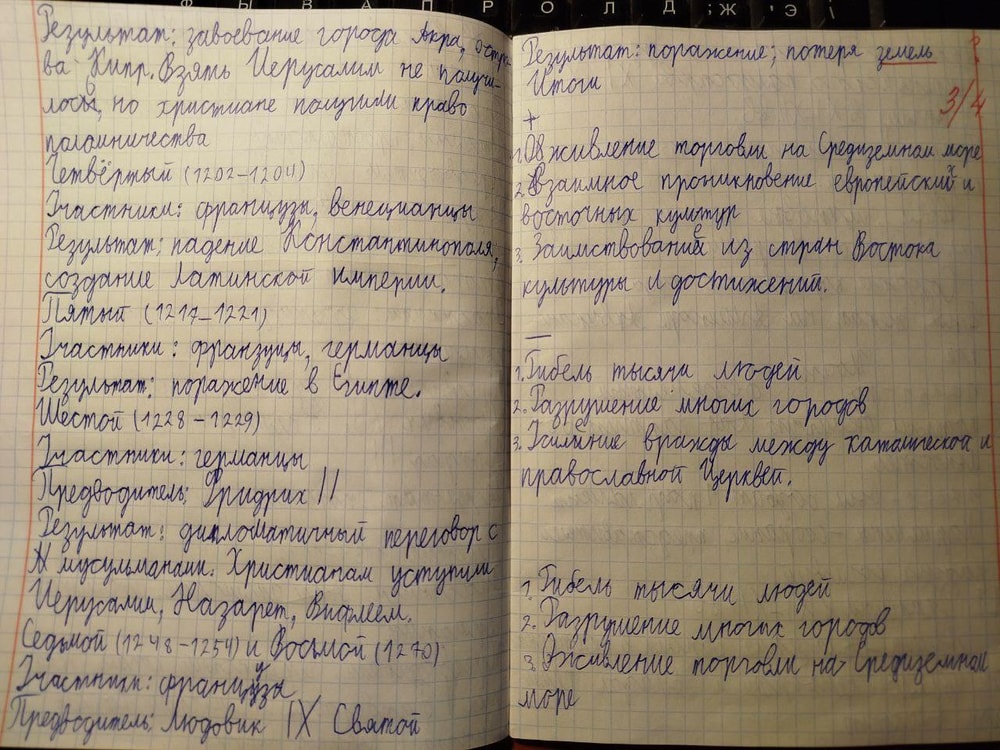 Ф Ы В А П Р О Л Д ; Ж ' Э \
Результат: завоевание города Акра, остро-
ва Кипр. Взять Иерусалим не получи-
лось, но христиане получили право
паломничества
Четвёртый (1202-1204)
Участники: французы, венецианцы
Результат: падение Константинополя,
создание Латинской империи.
Пятый (1217-1221)
Участники: французцы, германцы
Результат: поражение в Египте.
Шестой (1228-1229)
Участники: германцы
Предводитель: Фридрих II
Результат: дипломатичный переговор с
мусульманами. Христианам уступили
Иерусалим, Назарет, Вифлеем.
Седьмой (1248-1254) и Восьмой (1270)
Участники: французы
Предводитель: Людовик IX Святой
Результат: поражение; потеря земель
Итоги
3/4
+
1. Оживление торговли на Средиземном море
2. Взаимное проникновение европейский и
восточных культур
3. Заимствований из стран Востока
культуры и достижений.
—
1. Гибель тысячи людей
2. Разрушение многих городов
3. Усиление вражды между католической и
православной Церквей.
1. Гибель тысячи людей
2. Разрушение многих городов
3. Оживление торговли на Средиземном
море